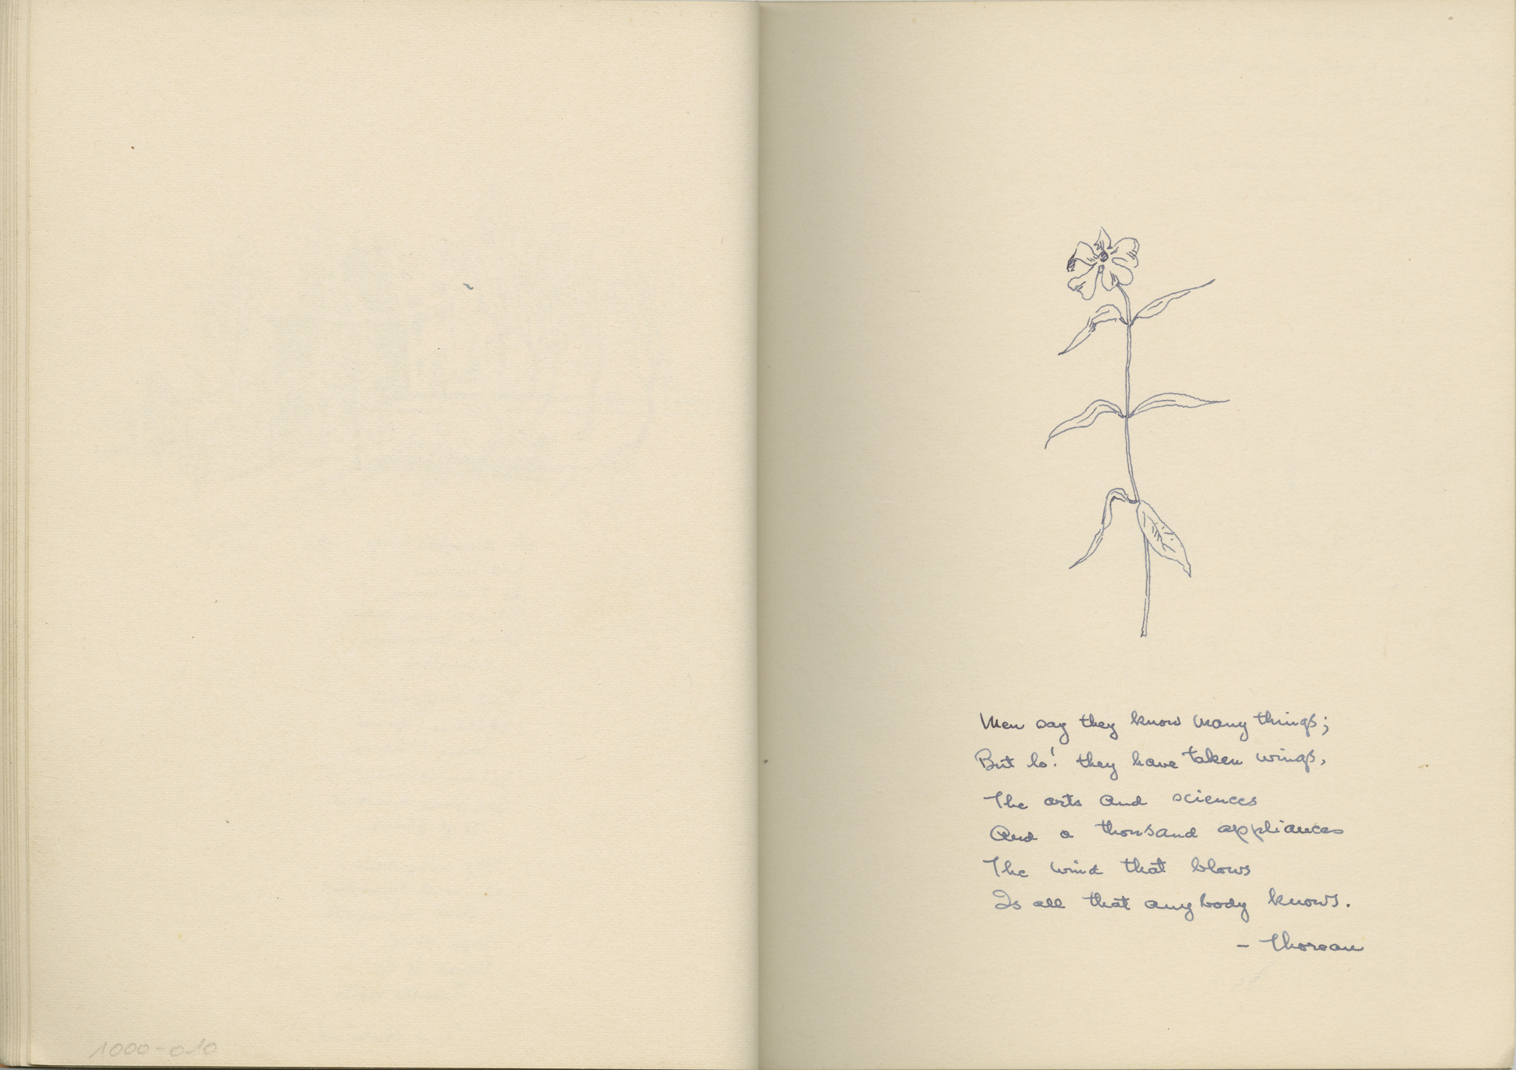 1000-010
Men say they know many things;
But lo! they have taken wings,
The arts and sciences
And a thousand appliances
The wind that blows
Is all that anybody knows.
- Thoreau